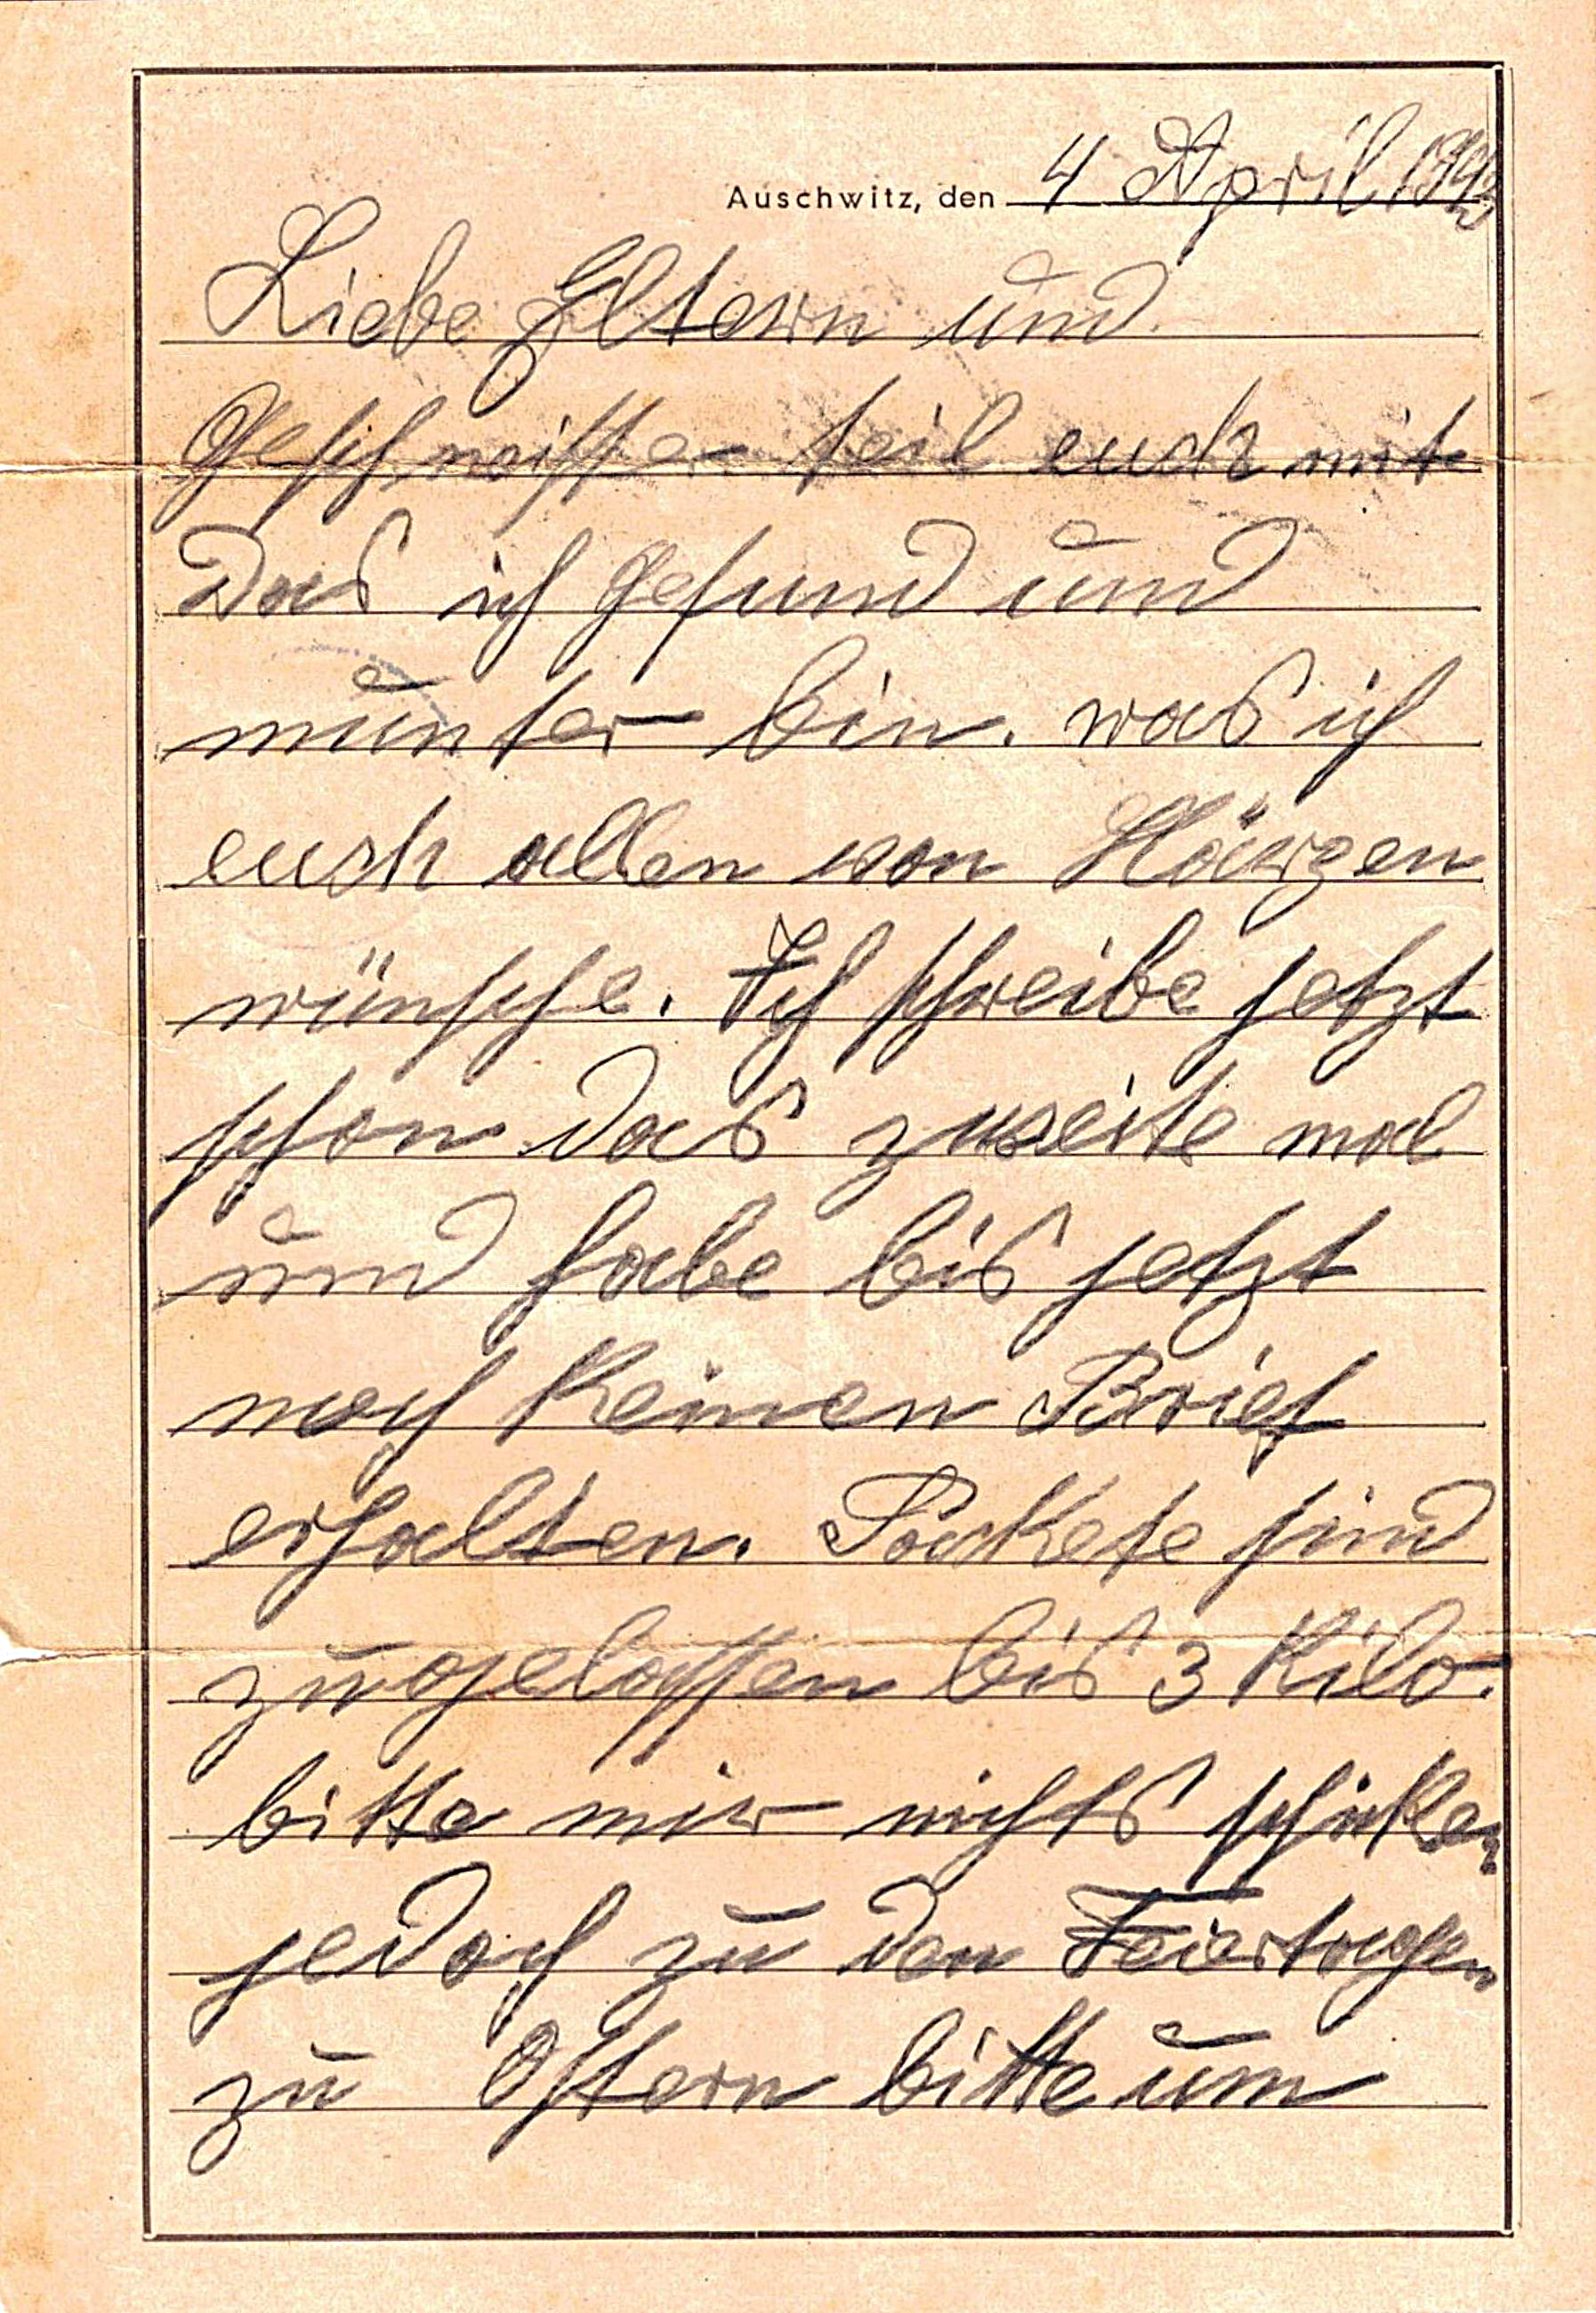 Auschwitz, den 4 April 1943
Liebe Eltern und
Geschweister teil euch mit
Das ich gesund und
munter bin. was ich
euch allen von Härzen
wünsche. Ich schreibe jetzt
schon das zweite mal
und habe bis jetzt
noch keinen Brief
erhalten. Packete sind
zugelassen bis 3 Kilo.
bitte mir nichts schicken
jedoch zu den Feiertagen
zu Ostern bitte um